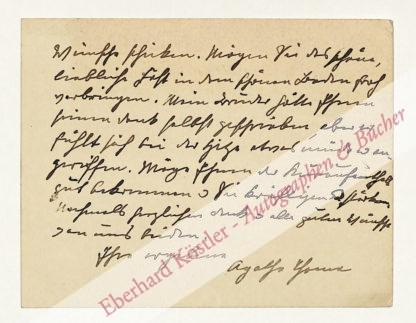 Wünsche schicken. Mögen Sie das schöne,
liebliche Fest in dem schönen Baden froh
verbringen. Mein Bruder hätte Ihnen
seinen Dank selbst geschrieben aber er
fühlt sich bei der Hitze etwas müde u. an-
gegriffen. Möge Ihnen der
gut bekommen u. Sie kräftigen u. stärken.
Nochmals herzlichen Dank u. alle guten Wünsche
von uns beiden.
Ihre ergebene
Agathe Thoma
Eberhard Köstler - Autographen & Bücher